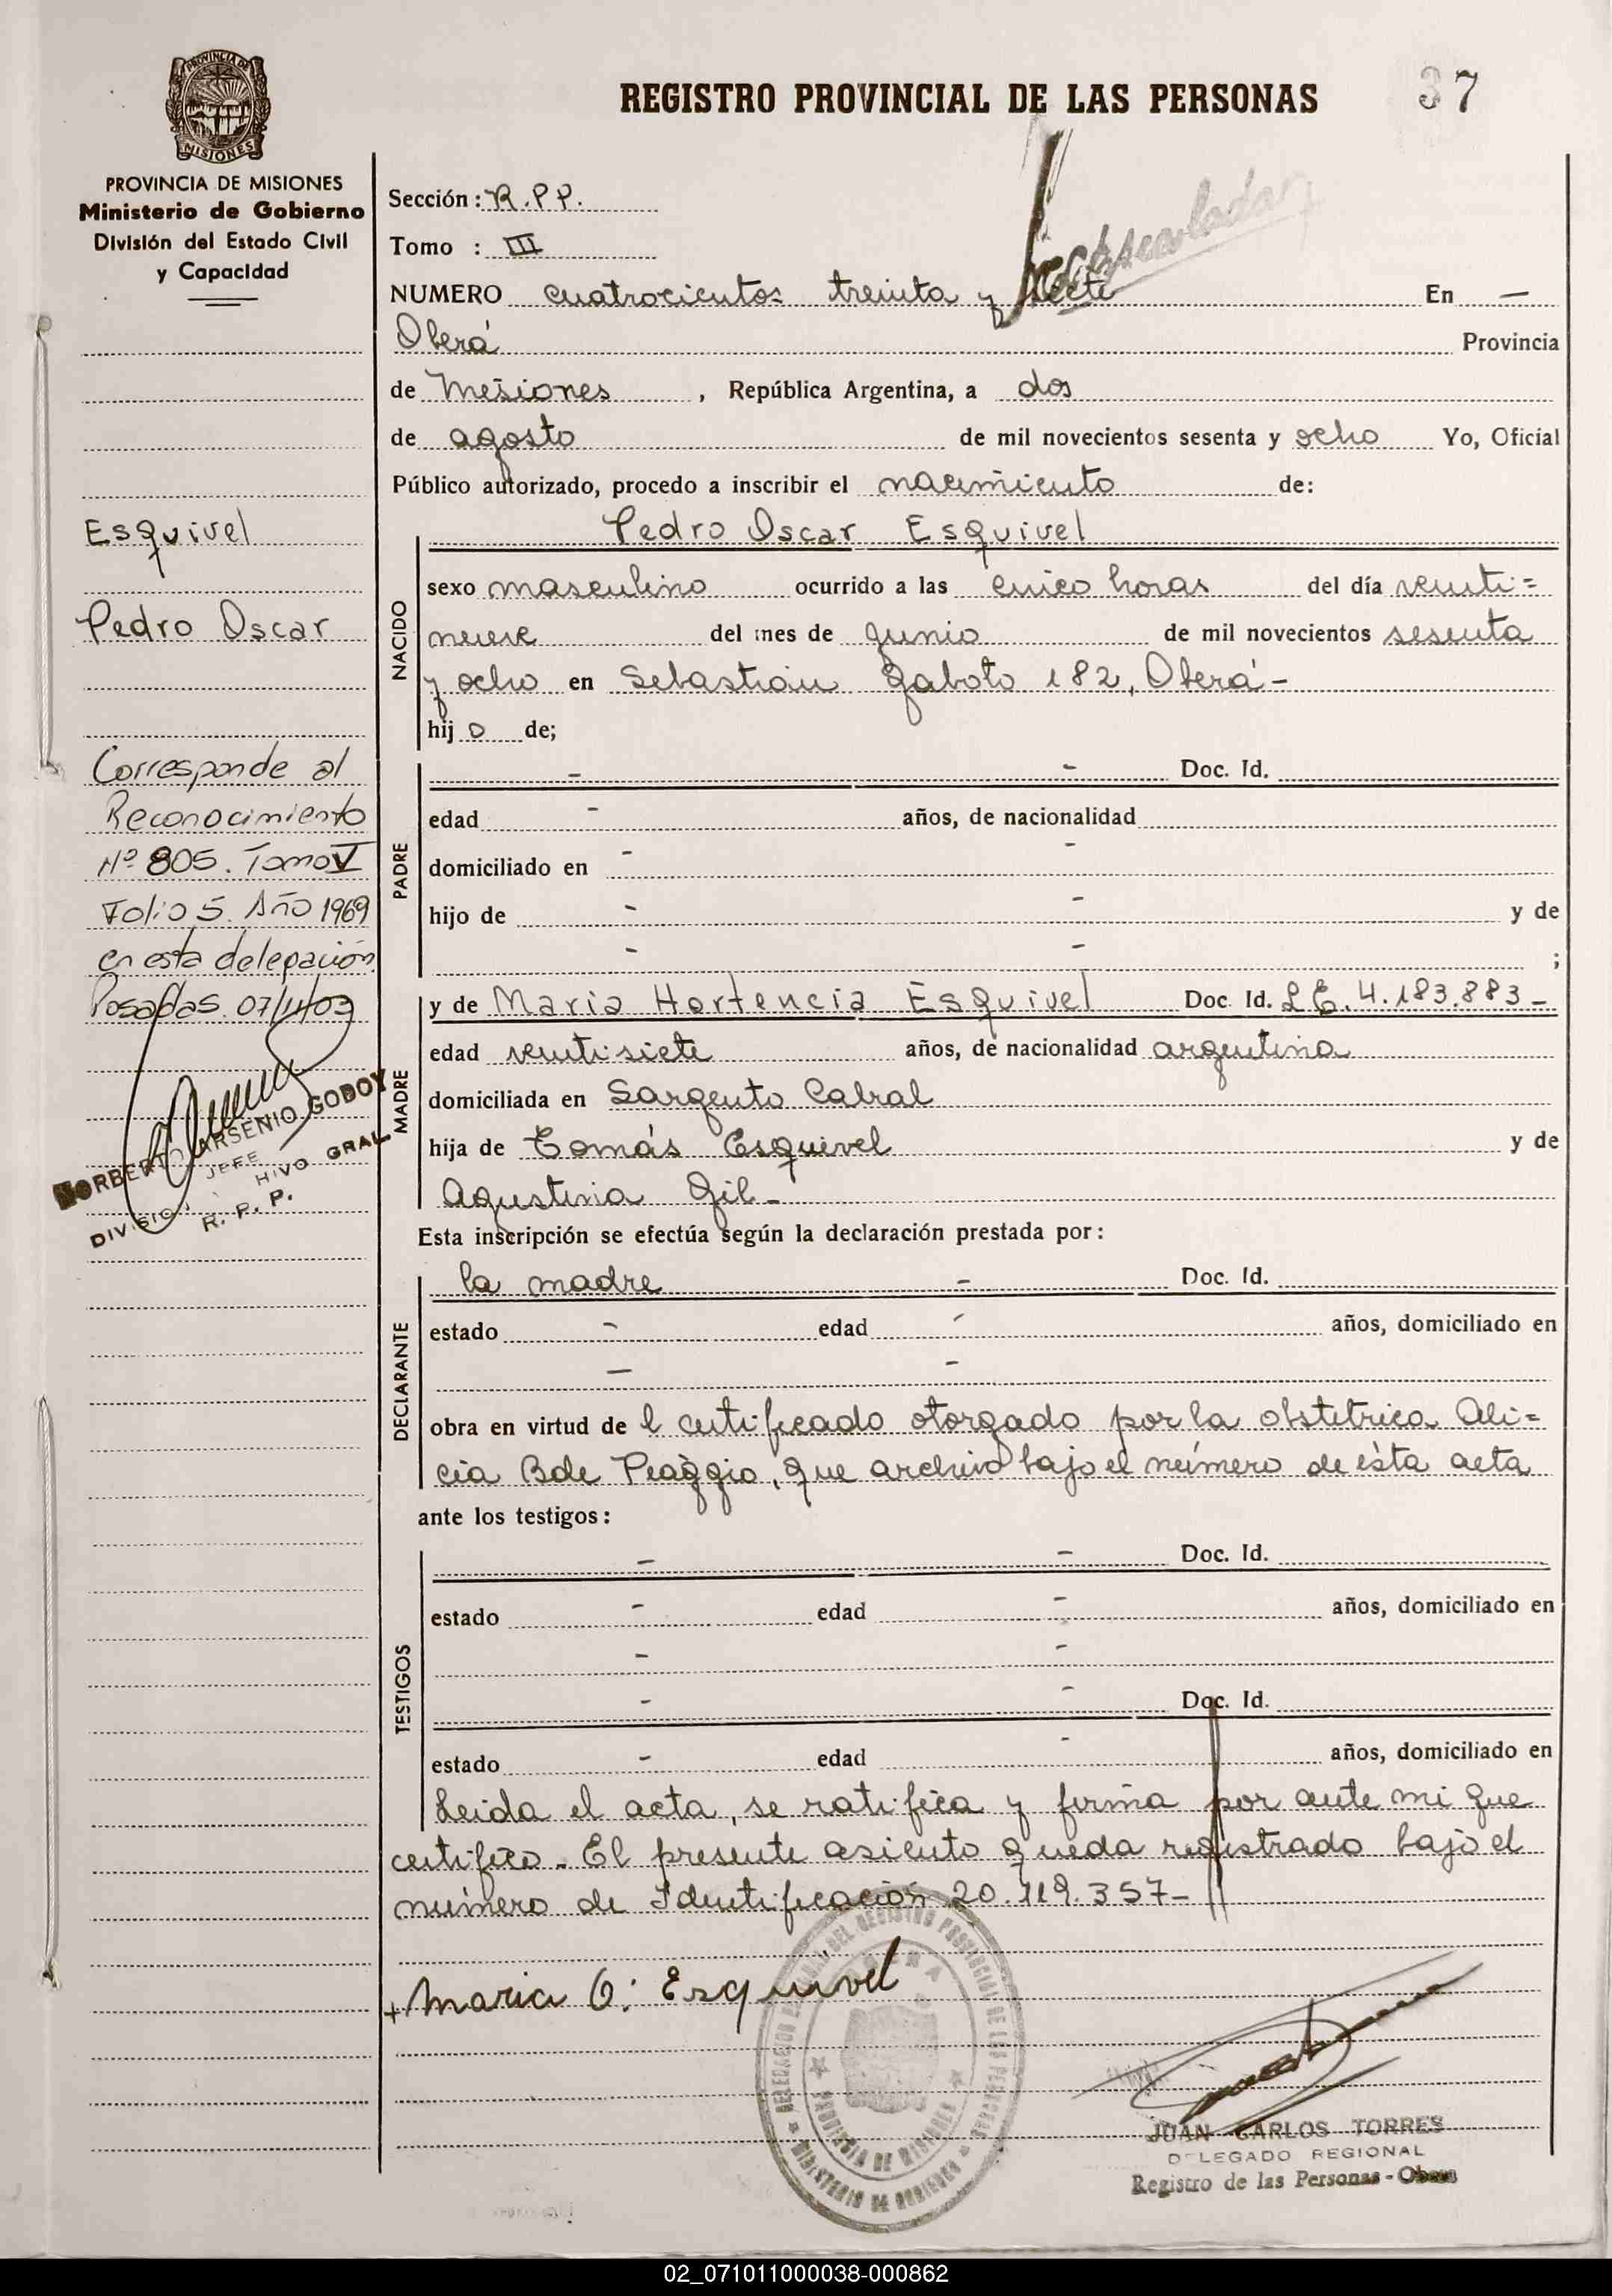 REGISTRO PROVINCIAL DE LAS PERSONAS
37
PROVINCIA DE MISIONES
PROVINCIA DE MISIONES
Ministerio de Gobierno
División del Estado Civil
y Capacidad
Sección : R.P.P.
Tomo : III
NUMERO cuatrocientos treinta y siete En —
Oberá Provincia
de Misiones , República Argentina, a dos
de agosto de mil novecientos sesenta y ocho Yo, Oficial
Público autorizado, procedo a inscribir el nacimiento de:
Esquivel
Pedro Oscar
Corresponde al
Reconocimiento
Nº 805. Tomo V
Folio 5. Año 1969
en esta delegación
Posadas. 07/11/03
NORBERTO ARSENIO GODOY
JEFE
DIVISIO HIVO GRAL.
R. P. P.
NACIDO
Pedro Oscar Esquivel
sexo masculino ocurrido a las cinco horas del día veinti=
nueve del mes de junio de mil novecientos sesenta
y ocho en Sebastián Gaboto 182, Oberá-
hij o de;
PADRE
- - Doc. Id.
edad - años, de nacionalidad
domiciliado en - -
hijo de - - y de
- - ;
MADRE
y de Maria Hortencia Esquivel Doc. Id. L E. 4.183.883-
edad veintisiete años, de nacionalidad argentina
domiciliada en Sargento Cabral
hija de Tomás Esquivel y de
Agustina Gil-
Esta inscripción se efectúa según la declaración prestada por:
DECLARANTE
la madre - Doc. Id.
estado - edad - años, domiciliado en
— -
obra en virtud de l certificado otorgado por la obstetrica Ali=
cia B de Piaggio, que archivo bajo el número de ésta acta
ante los testigos:
TESTIGOS
- - Doc. Id.
estado - edad - años, domiciliado en
- -
- - Doc. Id.
estado - edad - años, domiciliado en
Leida el acta, se ratifica y firma por ante mi que
certifico. El presente asiento queda registrado bajo el
número de Identificación 20.119.357-
+ Maria O: Esquivel
DEL REGISTRO PROVINCIAL DE LAS PERSONAS
PROVINCIA DE MISIONES
MINISTERIO DE GOBIERNO
JUAN CARLOS TORRES
DELEGADO REGIONAL
Registro de las Personas - Obera
02_071011000038-000862